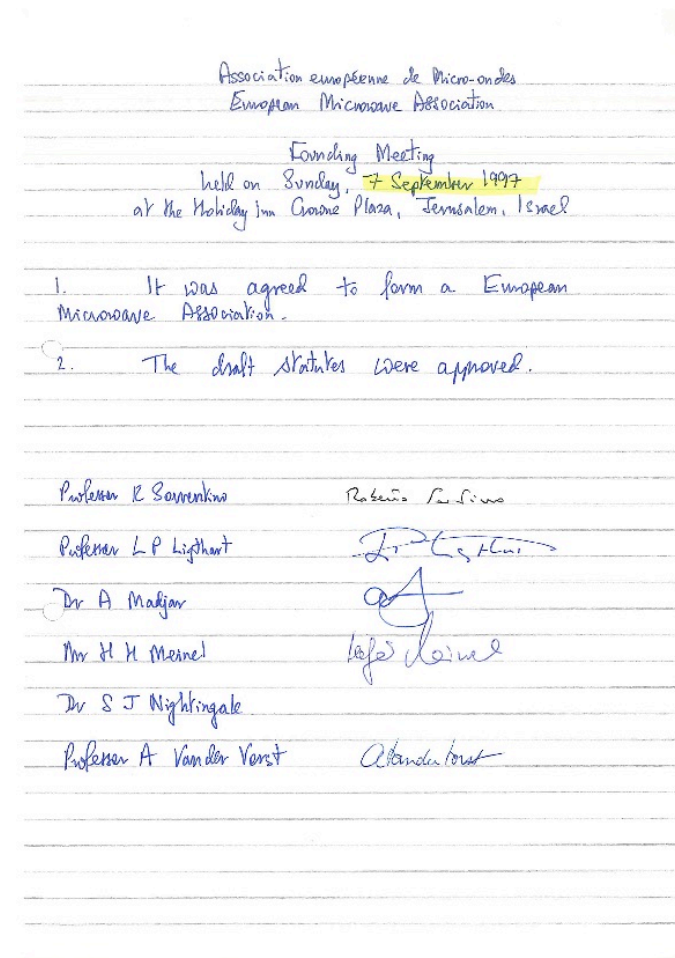 Association européenne de Micro-ondes
European Microwave Association
Founding Meeting
held on Sunday, 7 September 1997
at the Holiday Inn Crowne Plaza, Jerusalem, Israel
1. It was agreed to form a European
Microwave Association.
2. The draft statutes were approved.
Professor R Sorrentino
Professor L P Ligthart
Dr A Madjar
Mr H H Meinel
Dr S J Nightingale
Professor A Vander Vorst